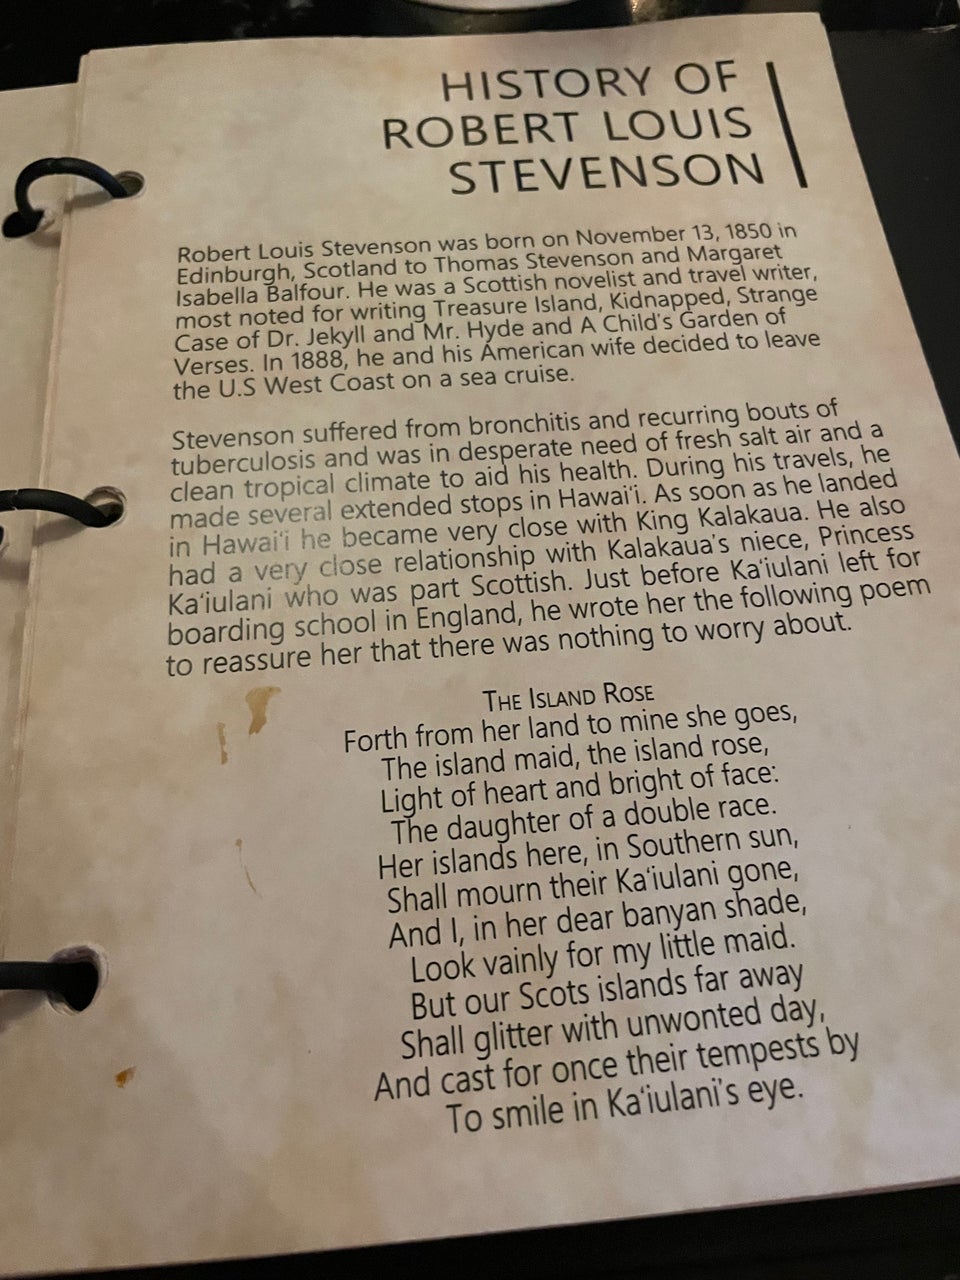 HISTORY OF
ROBERT LOUIS
STEVENSON
Robert Louis Stevenson was born on November 13, 1850 in
Edinburgh, Scotland to Thomas Stevenson and Margaret
Isabella Balfour. He was a Scottish novelist and travel writer,
most noted for writing Treasure Island, Kidnapped, Strange
Case of Dr. Jekyll and Mr. Hyde and A Child's Garden of
Verses. In 1888, he and his American wife decided to leave
the U.S West Coast on a sea cruise.
Stevenson suffered from bronchitis and recurring bouts of
tuberculosis and was in desperate need of fresh salt air and a
clean tropical climate to aid his health. During his travels, he
made several extended stops in Hawai'i. As soon as he landed
in Hawai'i he became very close with King Kalakaua. He also
had a very close relationship with Kalakaua's niece, Princess
Ka'iulani who was part Scottish. Just before Ka'iulani left for
boarding school in England, he wrote her the following poem
to reassure her that there was nothing to worry about.
THE ISLAND ROSE
Forth from her land to mine she goes,
The island maid, the island rose,
Light of heart and bright of face:
The daughter of a double race.
Her islands here, in Southern sun,
Shall mourn their Ka'iulani gone,
And I, in her dear banyan shade,
Look vainly for my little maid.
But our Scots islands far away
Shall glitter with unwonted day,
And cast for once their tempests by
To smile in Ka'iulani's eye.